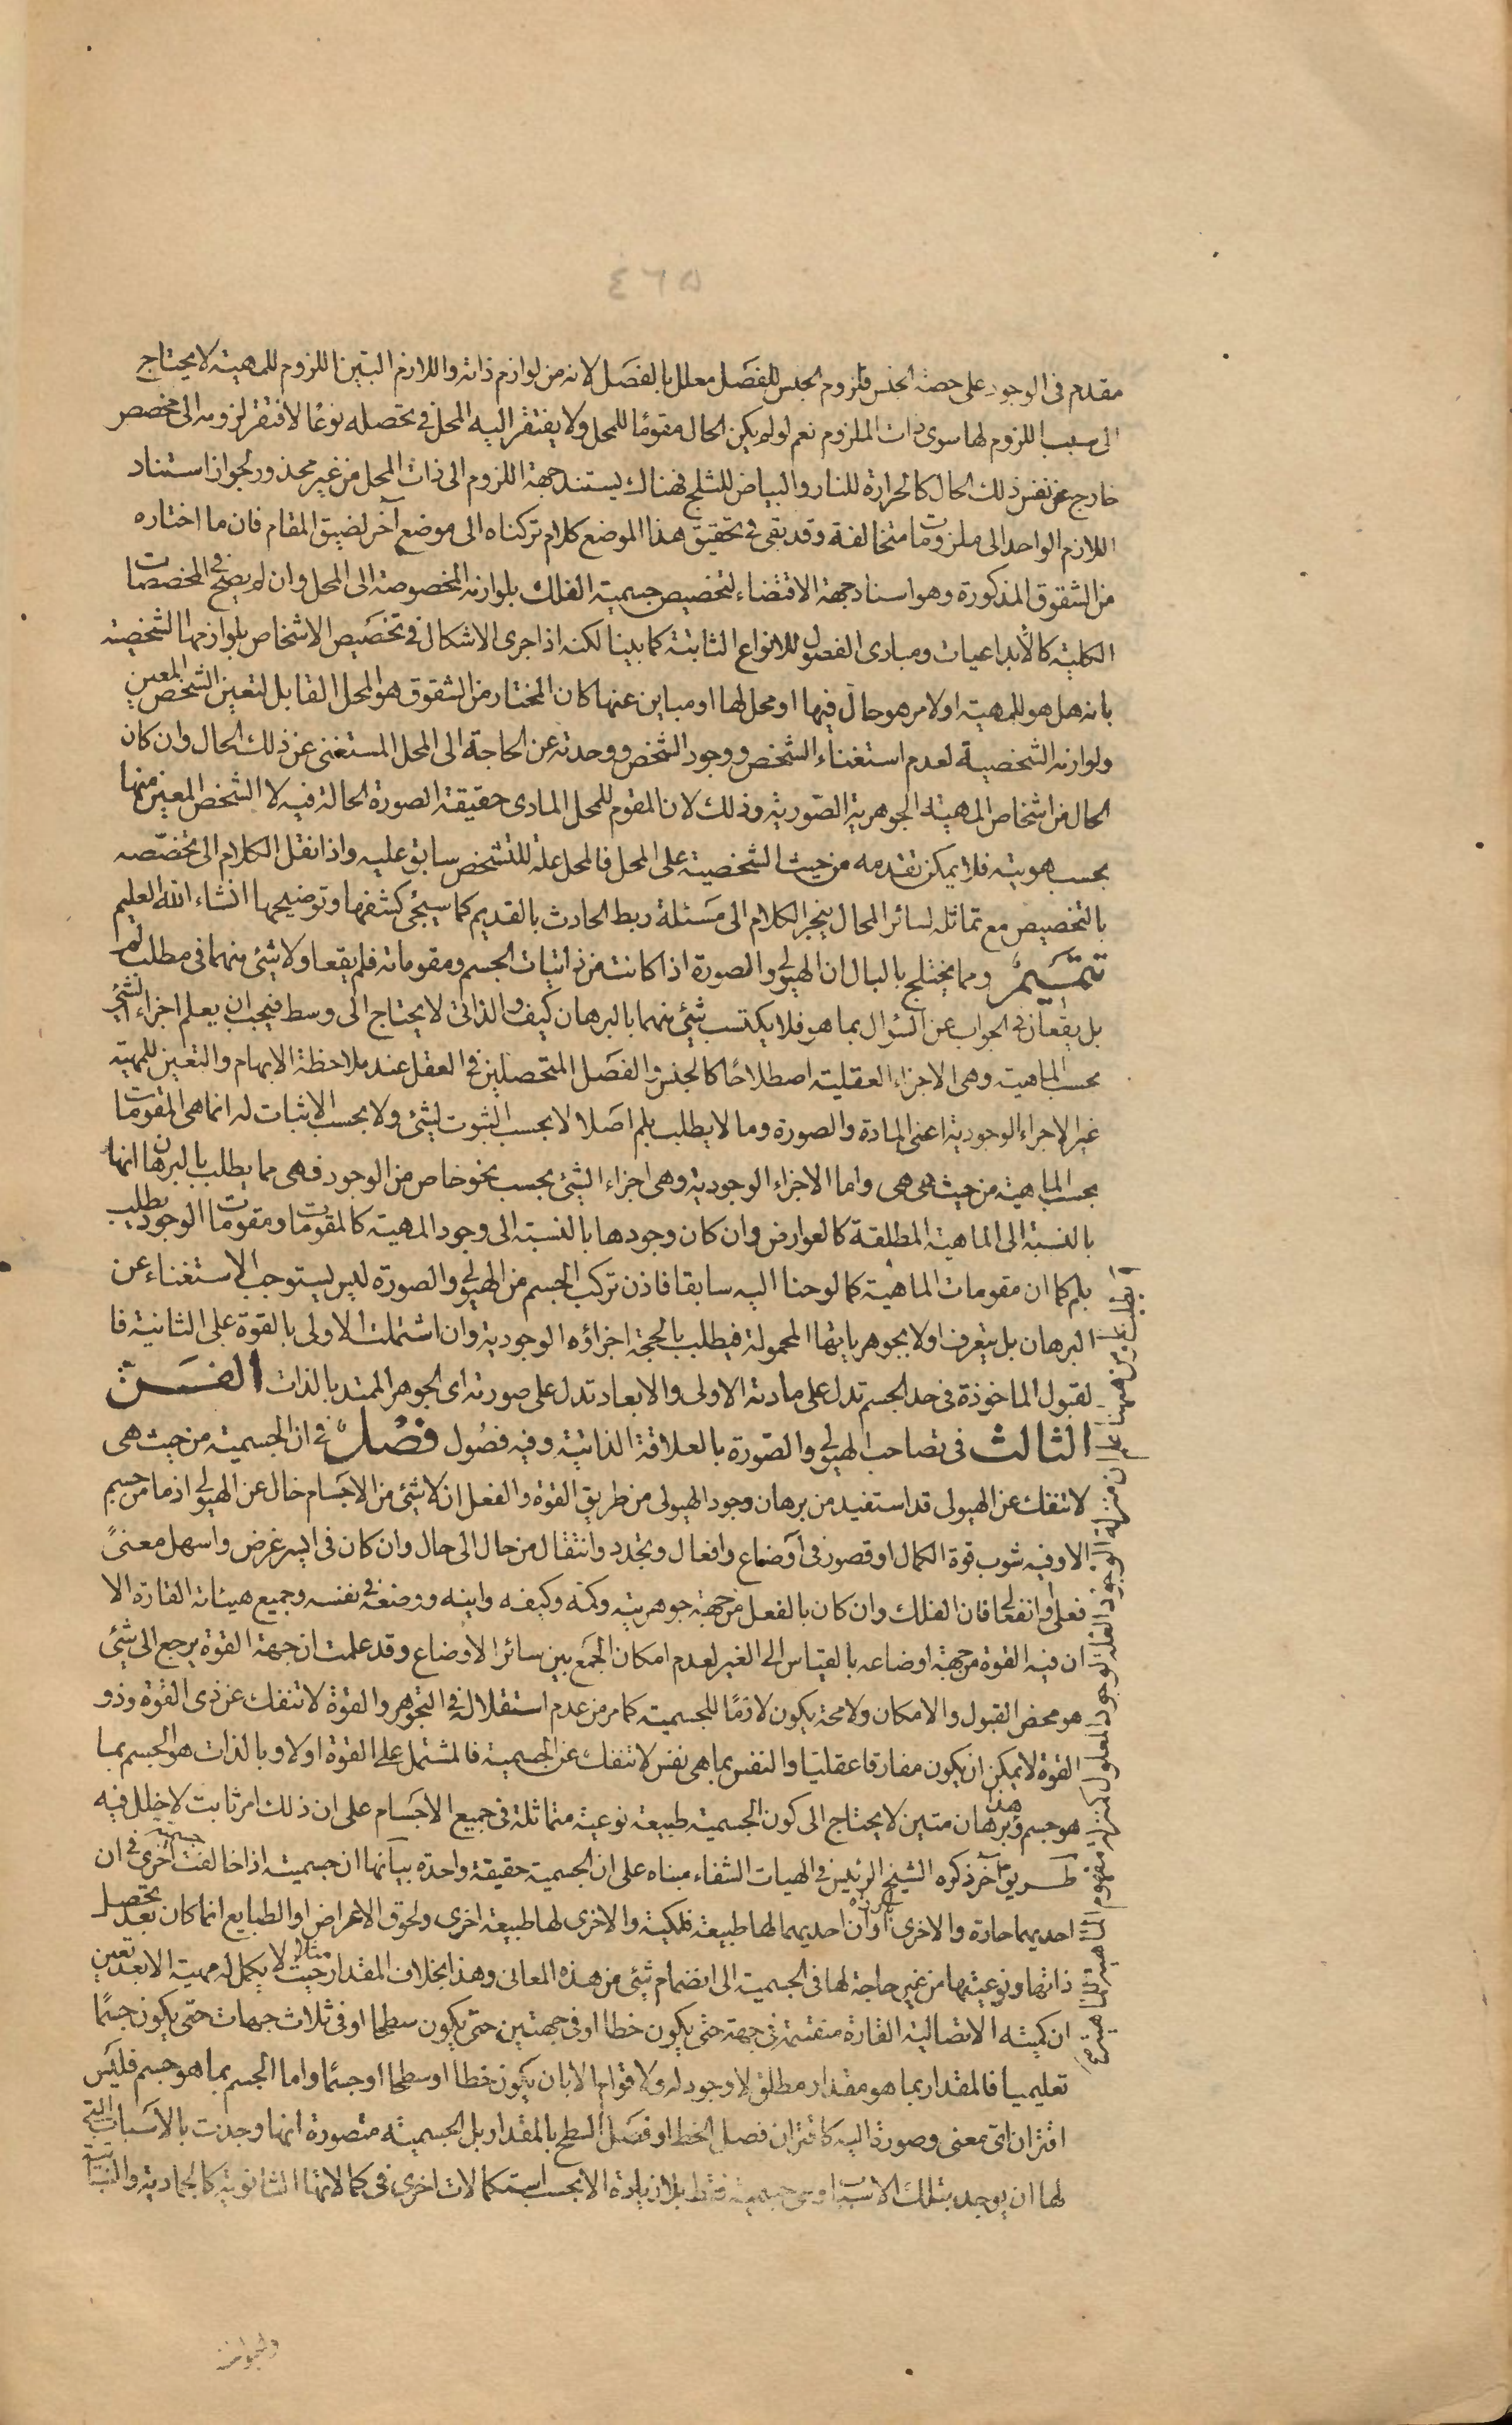 ٤٦٥
مقدم فى الوجود على حصة الجنس فلزوم الجنس للفصل معلل بالفصل لانه من لوازم ذاته واللازم البين اللزوم للمهية لا يحتاج
الى سبب اللزوم لها سوى ذات الملزوم نعم لو لم يكن الحال مقوما للمحل ولا يفتقر اليه المحل فى تحصله نوعا لافتقر لزومه الى مخصص
خارج عن نفس ذلك الحال كالحرارة للنار والبياض للثلج فهناك يستند جهة اللزوم الى ذات المحل من غير محذور لجواز استناد
اللازم الواحد الى ملزومات متخالفة وقد بقى فى تحقيق هذا الموضع كلام تركناه الى موضع آخر لضيق المقام فان ما اختاره
من الشقوق المذكورة وهو اسناد جهة الاقتضاء لتخصيص جسمية الفلك بلوازمه المخصوصة الى المحل وان لم يصح فى المخصصات
الكلية كالابداعيات ومبادى الفصول للانواع الثابتة كما بينا لكنه اذا جرى الاشكال فى تخصيص الاشخاص بلوازمها الشخصية
بانه هل هو للمهية او لامر هو حال فيها او محل لها او مباين عنها كان المختار من الشقوق هو المحل القابل لتعين الشخص المعين
ولوازمه الشخصية لعدم استغناء الشخص ووجود الشخص ووحدته عن الحاجة الى المحل المستغنى عن ذلك الحال وان كان
الحال من اشخاص المهية الجوهرية الصورية وذلك لان المقوم للمحل المادى حقيقة الصورة الحالة فيه لا الشخص المعين منها
بحسب هويته فلا يمكن تقدمه من حيث الشخصية على المحل فالمحل علة للتشخص سابق عليه واذا نقل الكلام الى تخصصه
بالتخصيص مع تماثله لسائر المحال ينجر الكلام الى مسئلة ربط الحادث بالقديم كما سيجئ كشفها وتوضيحها انشاء الله العليم
تتميم ومما يختلج بالبال ان الهيولى والصورة اذا كانتا من ذاتيات الجسم ومقوماته فلم يقعا ولا شئ منهما فى مطلب لم
بل يقعان فى الجواب عن السؤال بما هو فلا يكتسب شئ منهما بالبرهان كيف والذاتى لا يحتاج الى وسط فيجب ان يعلم اجزاء الشئ
بحسب الماهية وهى الاجزاء العقلية اصطلاحا كالجنس والفصل المتحصلين فى العقل عند ملاحظة الابهام والتعين للمهية
غير الاجزاء الوجودية اعنى المادة والصورة وما لا يطلب بلم اصلا لا بحسب الثبوت لشئ ولا بحسب الاثبات له انما هى المقومات
بحسب الماهية من حيث هى هى واما الاجزاء الوجودية وهى اجزاء الشئ بحسب نحو خاص من الوجود فهى مما يطلب بالبرهان انها
بالنسبة الى الماهية المطلقة كالعوارض وان كان وجودها بالنسبة الى وجود المهية كالمقومات ومقومات الوجود يطلب
بلم كما ان مقومات الماهية كما لوحنا اليه سابقا فاذن تركب الجسم من الهيولى والصورة ليس يستوجب الاستغناء عن
البرهان بل يتعرف اولا بجوهرياتها المحمولة فيطلب بالحجة اجزاؤه الوجودية وان اشتملت الاولى بالقوة على الثانية فا
لقبول الماخوذة فى حد الجسم تدل على مادته الاولى والابعاد تدل على صورته اى الجوهر الممتد بالذات الفن
الثالث فى تصاحب الهيولى والصورة بالعلاقة الذاتية وفيه فصول فصل فى ان الجسمية من حيث هى
لا تنفك عن الهيولى قد استفيد من برهان وجود الهيولى من طريق القوة والفعل ان لا شئ من الاجسام خال عن الهيولى اذ ما من جسم
الا وفيه شوب قوة الكمال او قصور فى اوضاع وافعال وتجدد وانتقال من حال الى حال وان كان فى ايسر غرض واسهل معنى
فعلى او انفعالى فان الفلك وان كان بالفعل من جهة جوهريته وكمه وكيفه واينه ووضعه فى نفسه وجميع هيئاته القارة الا
ان فيه القوة من جهة اوضاعه بالقياس الى الغير لعدم امكان الجمع بين سائر الاوضاع وقد علمت ان جهة القوة يرجع الى شئ
هو محض القبول والامكان ولا محة يكون لازما للجسمية كما مر من عدم استقلاله فى التجوهر والقوة لا تنفك عن ذى القوة وذو
القوة لا يمكن ان يكون مفارقا عقليا والنفس بما هى نفس لا تنفك عن الجسمية فالمشتمل على القوة اولا وبالذات هو الجسم بما
هو جسم وهذا برهان متين لا يحتاج الى كون الجسمية طبيعة نوعية متماثلة فى جميع الاجسام على ان ذلك امر ثابت لا خلل فيه
طريق آخر ذكره الشيخ الرئيس فى الهيات الشفاء مبناه على ان الجسمية حقيقة واحدة بيانها ان جسمية اذا خالفت جسمية اخرى فى ان
احديهما حارة والاخرى باردة او ان احديهما لها طبيعة فلكية والاخرى لها طبيعة اخرى ولحوق الاعراض او الطبايع انما كان بعد تحصل
ذاتها ونوعيتها من غير حاجة لها فى الجسمية الى انضمام شئ من هذه المعانى وهذا بخلاف المقدار مثلا حيث لا يكمل له مهية الا بعد تعين
ان كميته الاتصالية القارة منقسمة فى جهة حتى يكون خطا او فى جهتين حتى يكون سطحا او فى ثلاث جهات حتى يكون جسما
تعليميا فالمقدار بما هو مقدار مطلق لا وجود له ولا قوام الا بان يكون خطا او سطحا او جسما واما الجسم بما هو جسم فليس
اقتران اى معنى وصورة اليه كاقتران فصل الخط او فصل السطح بالمقدار بل الجسمية متصورة انها وجدت بالاسباب التى
لها ان يوجد بتلك الاسباب وهى جسمية فقط بلا زيادة الا بحسب استكمالات اخرى فى كمالاتها الثانوية كالجمادية والنباتية
ان منزلة الوجود العلة لوجود المعلول كمنزلة مقوم الماهية للماهية